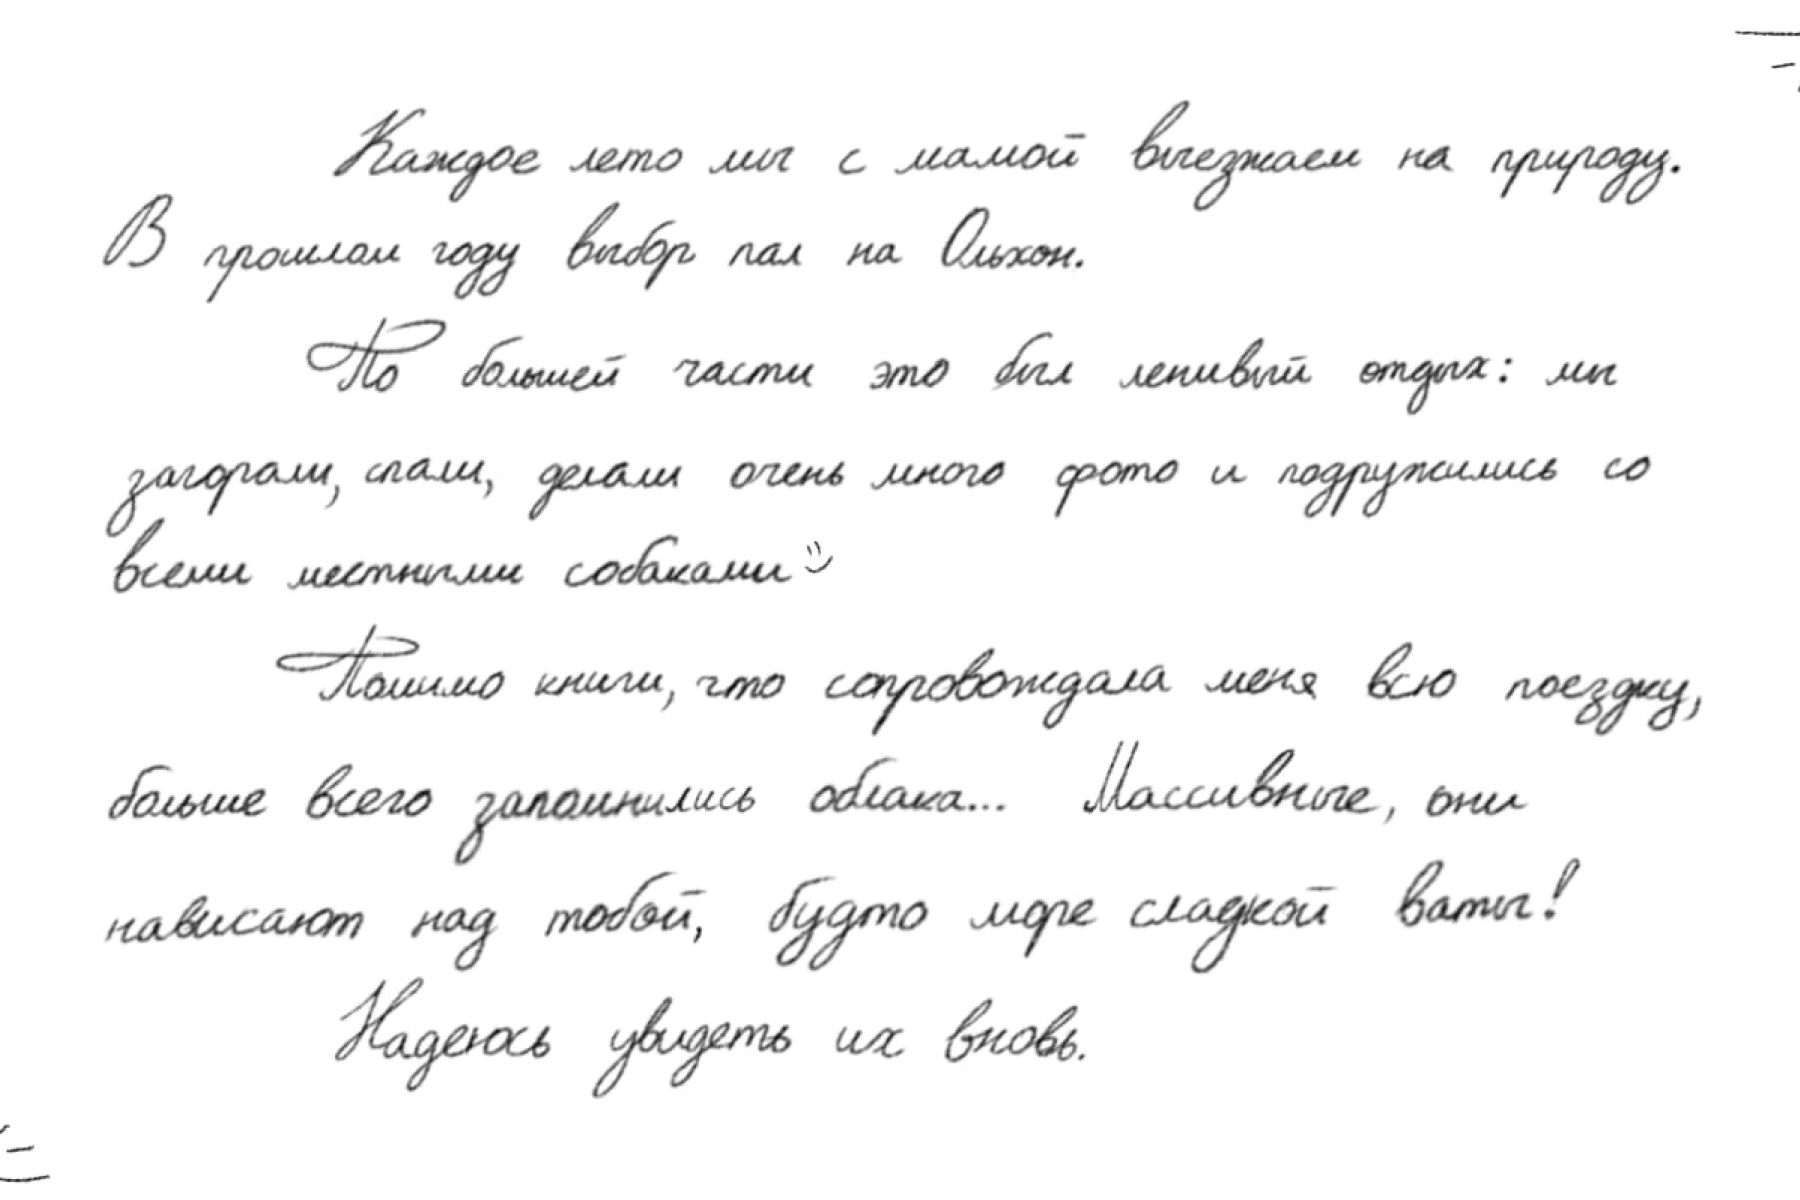 Каждое лето мы с мамой выезжаем на природу.
В прошлом году выбор пал на Ольхон.
По большей части это был ленивый отдых: мы
загорали, спали, делали очень много фото и подружились со
всеми местными собаками
Помимо книги, что сопровождала меня всю поездку,
больше всего запомнились облака... Массивные, они
нависают над тобой, будто море сладкой ваты!
Надеюсь увидеть их вновь.